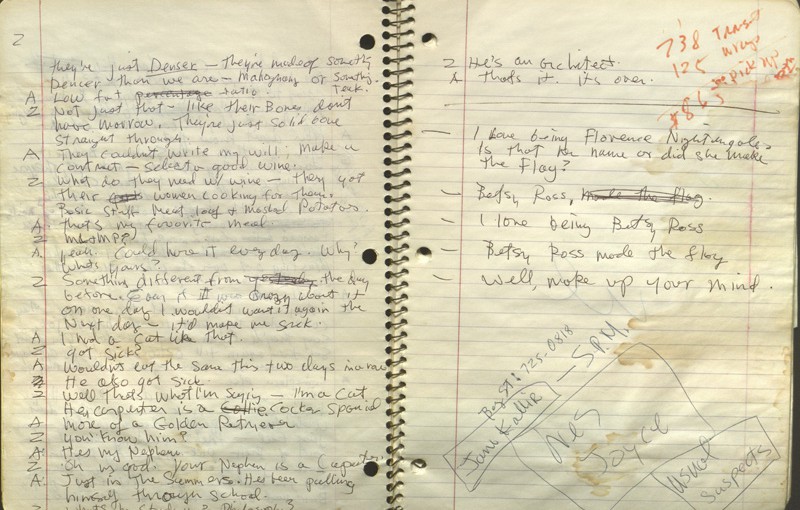 2
they're just Denser – they're made of something
Dencer than we are – Mahogany or something.
Teak.
A Low fat percentage ratio.
Z Not just that – like their Bones don't
have Morrow. They're just solid bone
straight through.
A They couldn't write my will. Make a
contract – select a good wine.
Z What do they need us wine – they got
their women cooking for them.
Basic Stuff Meat loaf & Mashed Potatos.
A That's my favorite meal.
Z
A Yeah. Could have it everyday. Why?
What's yours?
Z Something different from yesterday the day
before. Even if I was Crazy about it
on one day I wouldn't want it again the
Next day – it'd make me sick.
A I had a Cat like that.
Z got sick?
A Wouldn't eat the same this two days in a row
He also got sick
Z Well that's what I'm saying – I'm a Cat
Her carpenter is a Collie Cocker Spaniel
A more of a Golden Retriever
Z You know him?
A: He's my Nephew.
Z Oh my god. Your Nephew is a Carpenter.
A: Just in the Summers. He's been putting
himself through school.
Z What's he Studying? Philosophy?
Z He's an architect.
A that's it. it's over.
738
125
pick up
$863
– I love being Florence Nightingale.
Is that her name or did she make
the flag?
– Betsy Ross, made the flag.
– I love being Betsy Ross
– Betsy Ross made the flag
– Well, make up your mind.
725-0818
Jane Kallir – 5 P.M.
Joyce
Usual
Suspects